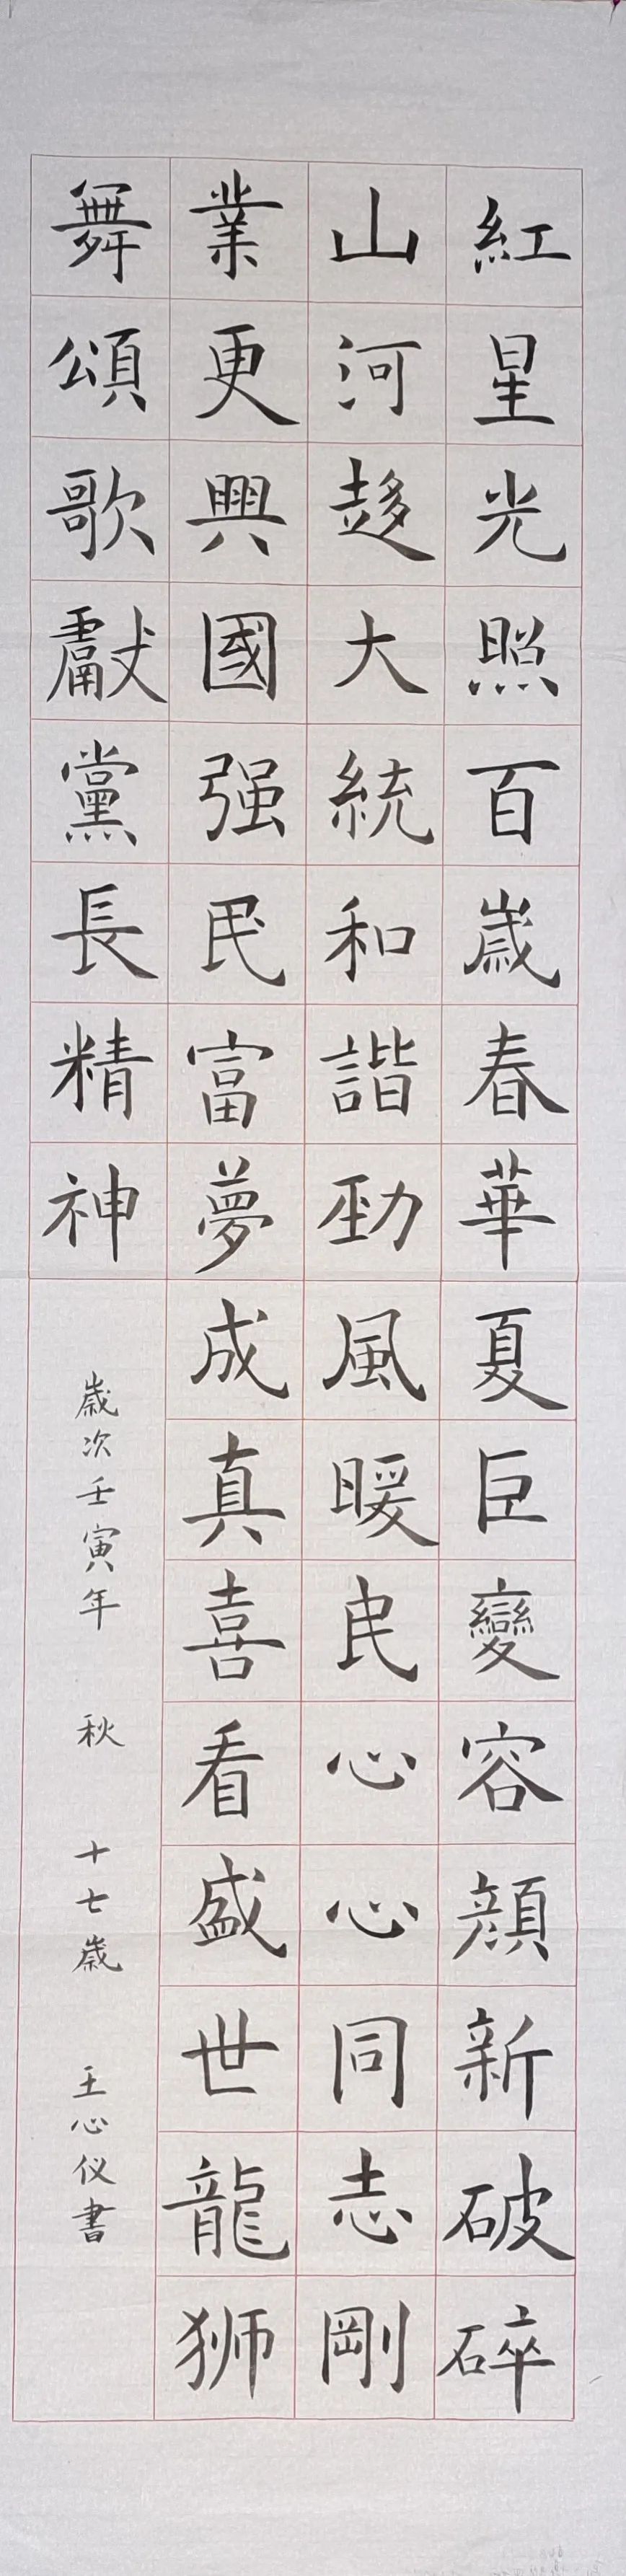 紅星光照百歲春華夏巨變容顔新破碎
山河趍大統和諧勁風暖民心心同志剛
業更興國强民富夢成真喜看盛世龍狮
舞頌歌獻黨長精神
歲次壬寅年 秋 十七歲 王心仪書